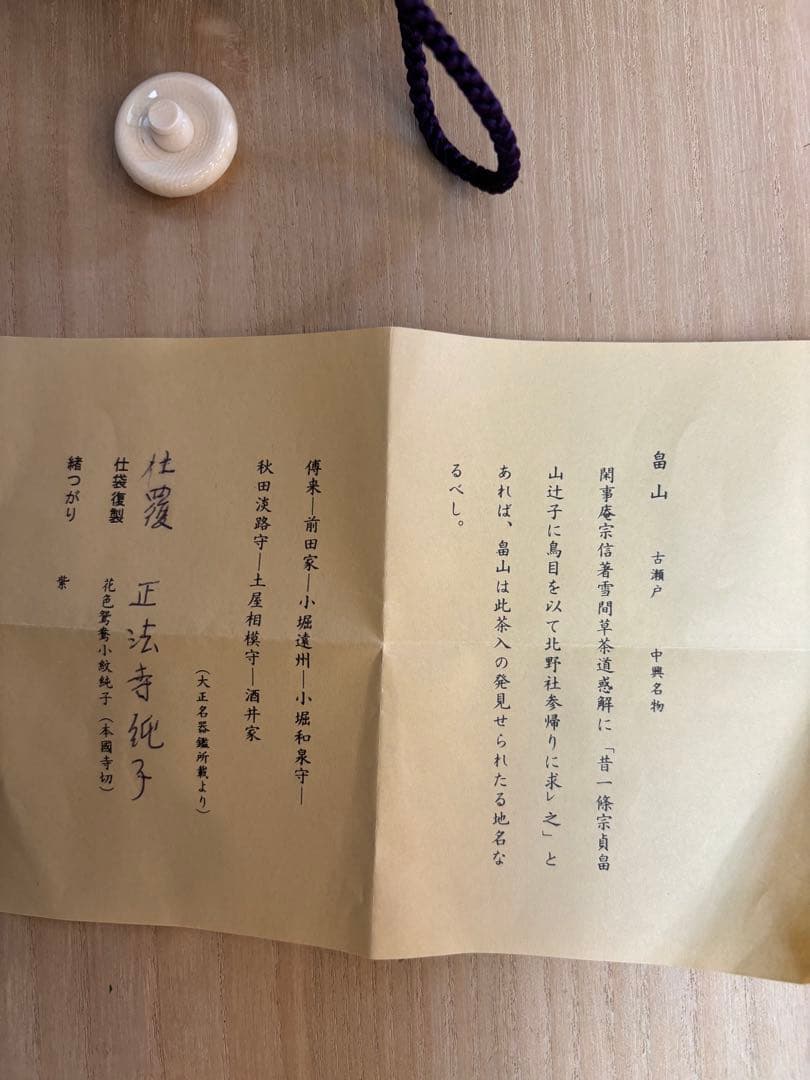 畠山　古瀬戸　中興名物
閑事庵宗信著雪間草茶道惑解に「昔一條宗貞畠
山辻子に鳥目を以て北野社参帰りに求レ之」と
あれば、畠山は此茶入の発見せられたる地名な
るべし。
傳来―前田家―小堀遠州―小堀和泉守―
秋田淡路守―土屋相模守―酒井家
（大正名器鑑所載より）
仕覆　正法寺純子
仕袋復製　花色鴛鴦小紋純子（本國寺切）
緒つがり　紫